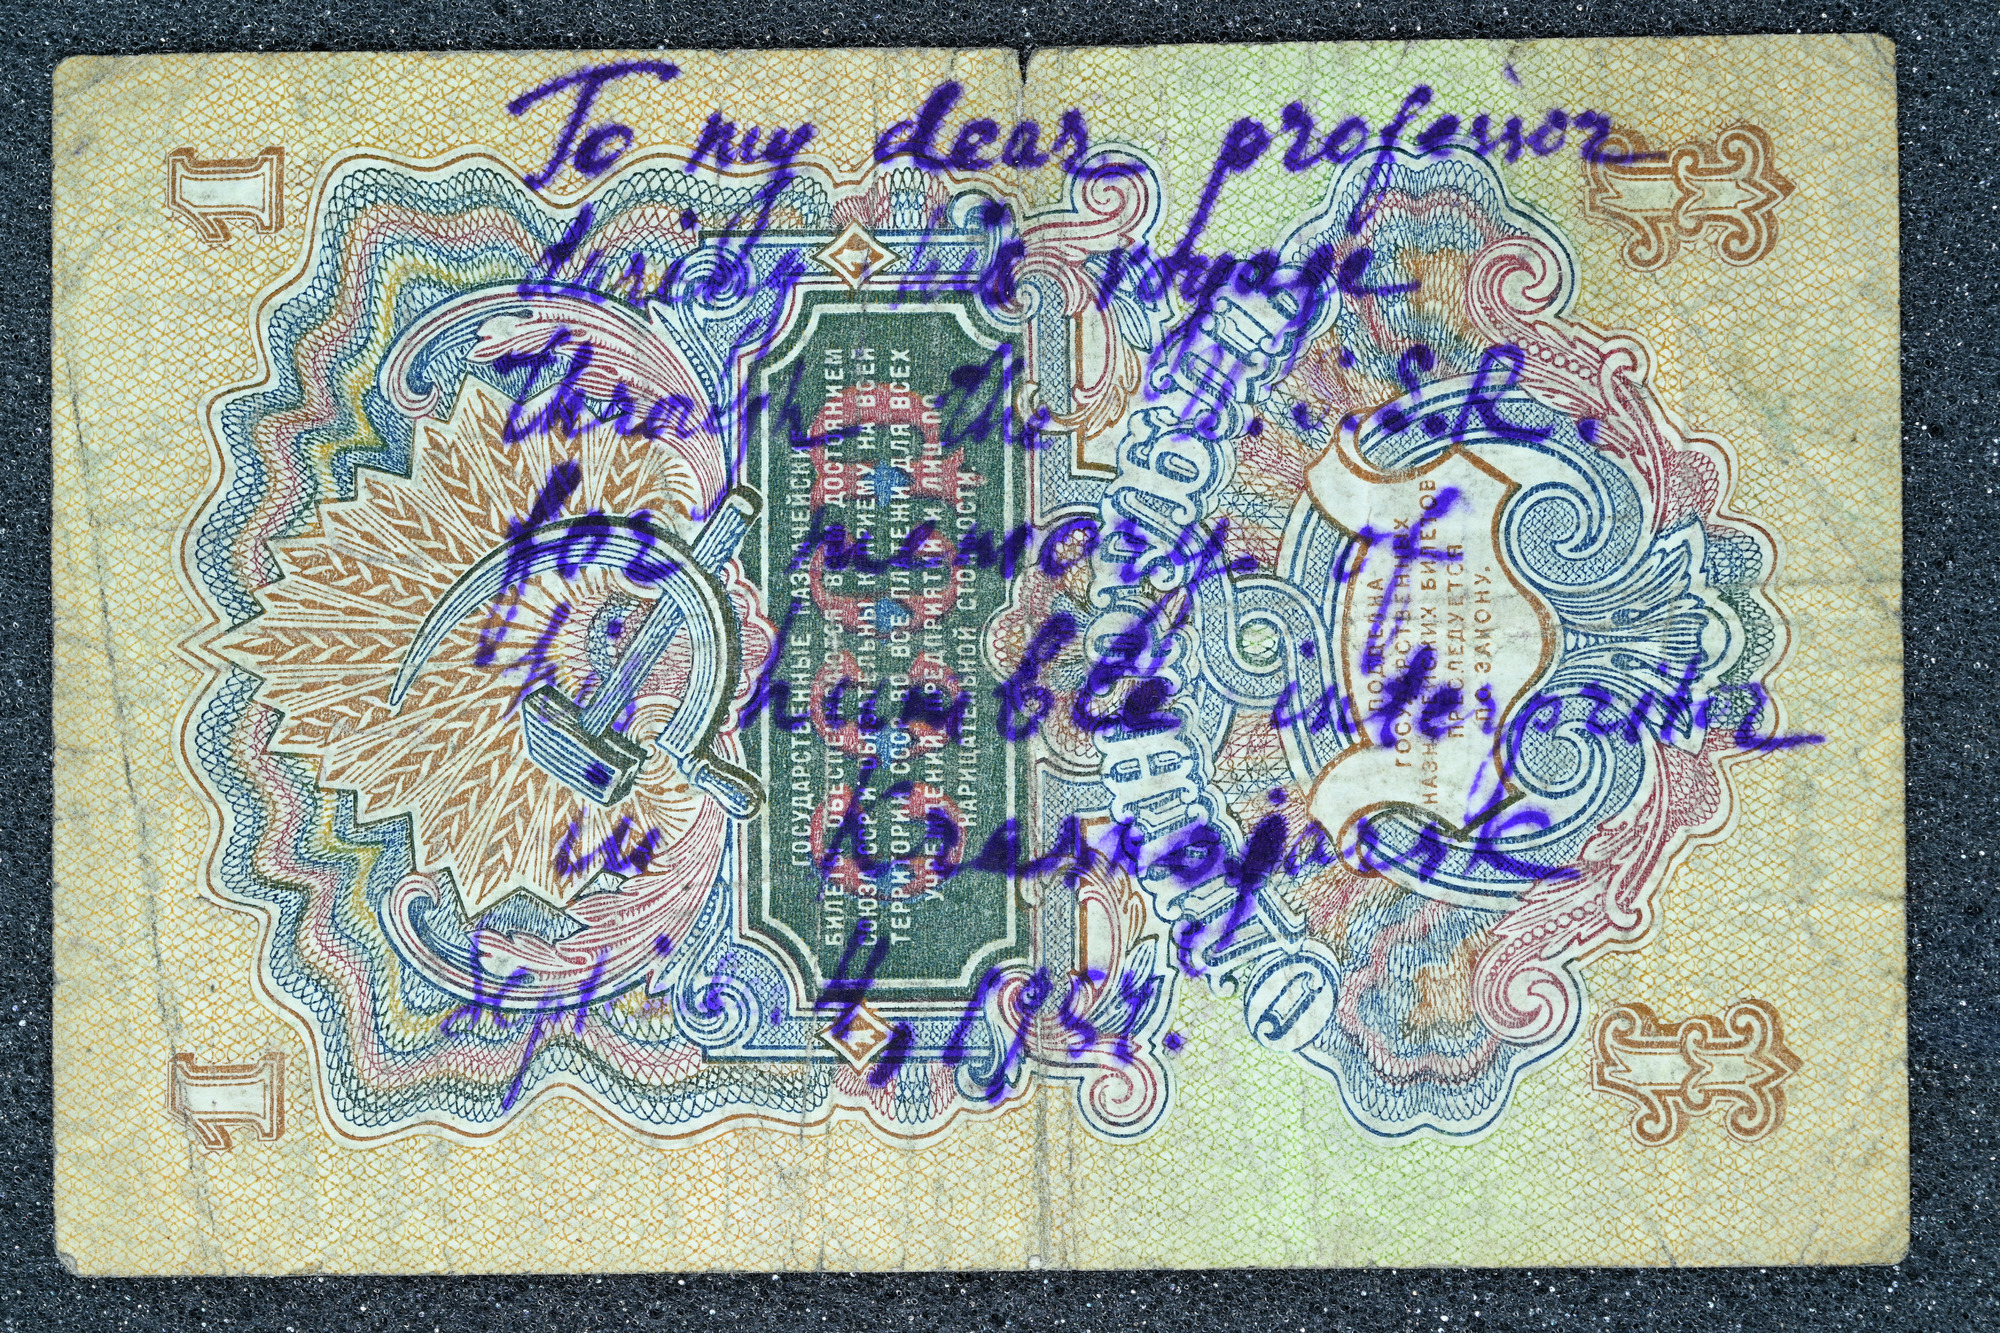 To my dear professor
during his voyage
through the U.S.S.R.
for memory of
his humble interpritor
in Krasnojarsk
Sept. 4, 1951.
1
1
1
1
1
1
ГОСУДАРСТВЕННЫЕ КАЗНАЧЕЙСКИЕ
БИЛЕТЫ ОБЕСПЕЧИВАЮТСЯ ВСЕМ ДОСТОЯНИЕМ
СОЮЗА ССР И ОБЯЗАТЕЛЬНЫ К ПРИЕМУ НА ВСЕЙ
ТЕРРИТОРИИ СССР ВО ВСЕ ПЛАТЕЖИ ДЛЯ ВСЕХ
УЧРЕЖДЕНИЙ, ПРЕДПРИЯТИЙ И ЛИЦ ПО
НАРИЦАТЕЛЬНОЙ СТОИМОСТИ.
Один рубль
ПОДДЕЛКА
ГОСУДАРСТВЕННЫХ
КАЗНАЧЕЙСКИХ БИЛЕТОВ
ПРЕСЛЕДУЕТСЯ
ПО ЗАКОНУ.